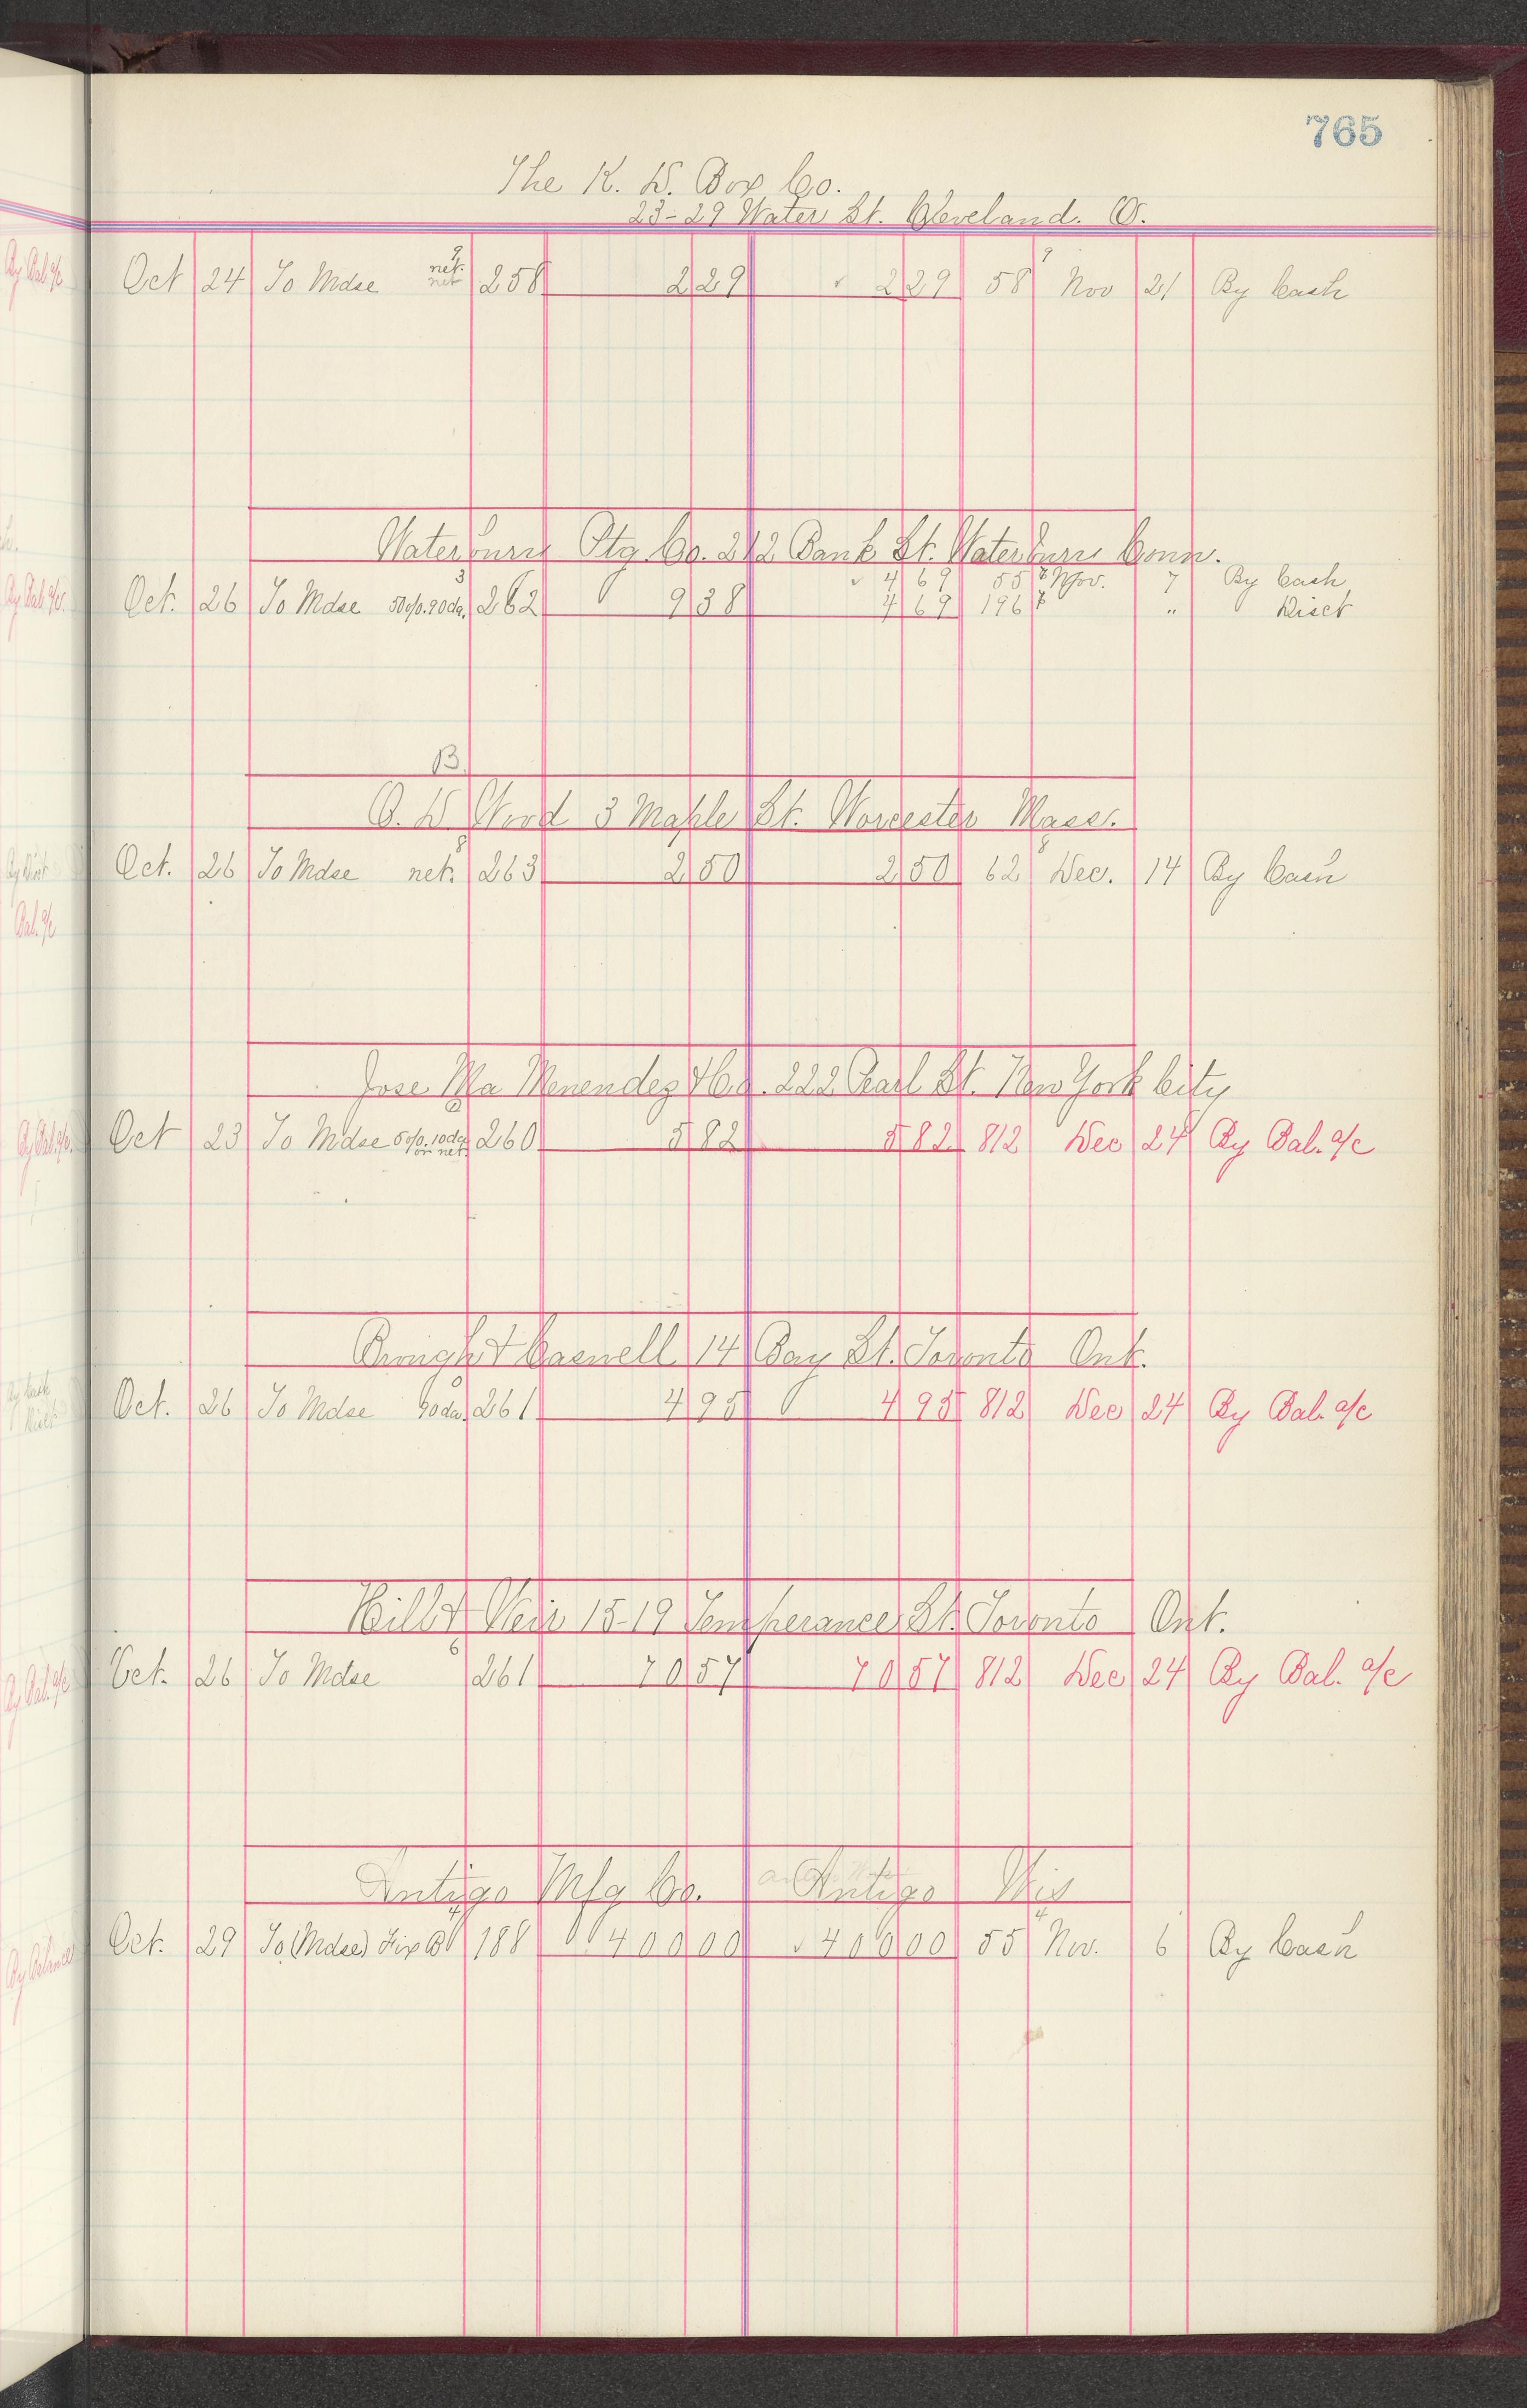 765
The K. D. Box Co.
23-29 Water St. Cleveland. O.
Oct 24 To Mdse net 9 258 2 29 ✓ 2 29 58 9 Nov 21 By Cash
Waterbury Ptg Co. 212 Bank St. Waterbury Conn.
✓ 4 69 55 8 Nov. 7 By Cash
Oct. 26 To Mdse 50%.90da. 3 262 9 38 4 69 196 8 " Disct
B.
O. D. Wood 3 Maple St. Worcester Mass.
Oct. 26 To Mdse net. 8 263 2 50 2 50 62 8 Dec. 14 By Cash
Jose Ma Menendez & Co. 222 Pearl St. New York City
Oct 23 To Mdse 5%.10da or net 260 5 82 5 82 812 Dec 24 By Bal. a/c
& 14 Bay St. Toronto Ont.
Oct. 26 To Mdse 90da. 261 4 95 4 95 812 Dec 24 By Bal. a/c
Hill & Weir 15-19 Temperance St. Toronto Ont.
Oct. 26 To Mdse 6 261 70 57 70 57 812 Dec 24 By Bal. a/c
Antigo Mfg Co. Antigo Wis
Oct. 29 To (Mdse) Fix 188 400 00 ✓ 400 00 55 4 Nov. 6 By Cash